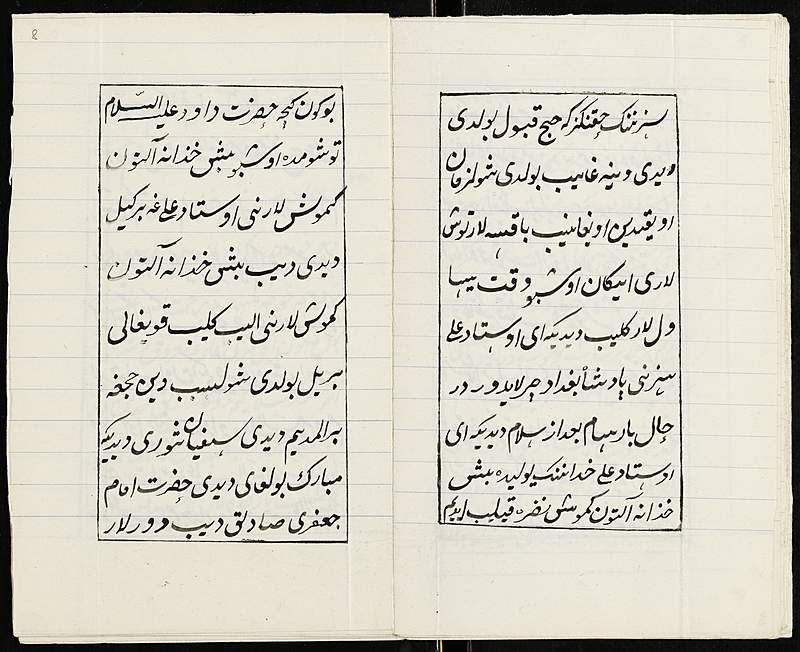 سیزننک حقنکزکه حج قبول بولدی
دیدی دینه غایب بولدی شولزمان
اویقیدین اویغانیب باقسه لار توش
لاری ایکان اوشبو وقت یسا
ول لار کلیب دیدیکه ای اوستاد علی
سیزنی پادشاه بغداد چرلایدور در
حال بارسام بعد از سلام دیدیکه ای
اوستاد علی خداننک یولیده بیش
خذانه آلتون کموش نضره قیلیب ایدیم
8
بوکون کیچه حضرت داود علیه السلام
توشومده اوشبو بیش خذانه آلتون
کموش لارنی اوستاد علی غه برکیل
دیدی دیب بیش خذانه آلتون
کموش لارنی الیب کلیب قویغالی
بریل بولدی شول سبب دین حجغه
برالمدیم دیدی سفیان ثوری دیدیکه
مبارک بولغای دیدی حضرت امام
جعفری صادق دیب دورلار